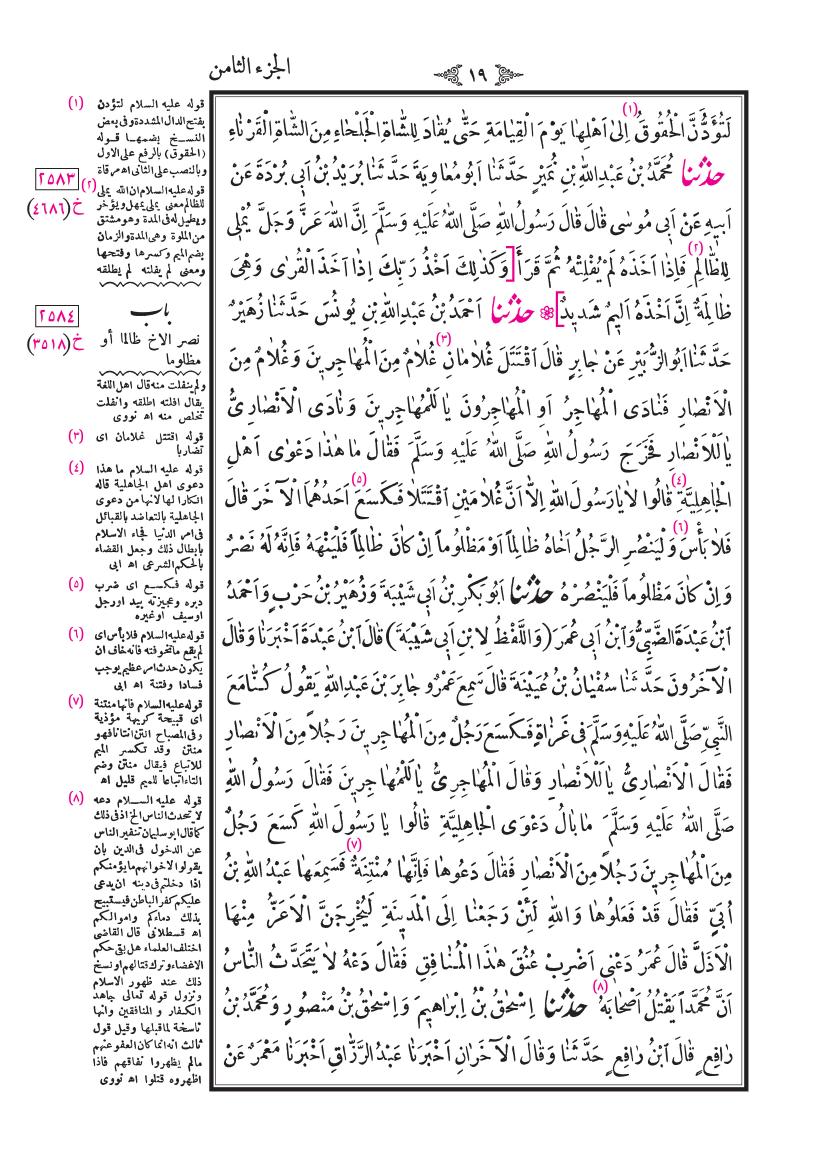 الجزء الثامن
١٩
لَتُؤَدُّنَّ الْحُقُوقَ (١) اِلىٰ اَهْلِهَا يَوْمَ الْقِيَامَةِ حَتّٰى يُقَادَ لِلشَّاةِ الْجَلْحَاءِ مِنَ الشَّاةِ الْقَرْنَاءِ
حدثنا مُحَمَّدُ بْنُ عَبْدِاللهِ بْنِ نُمَيْرٍ حَدَّثَنَا اَبُو مُعَاوِيَةَ حَدَّثَنَا بُرَيْدُ بْنُ اَبِي بُرْدَةَ عَنْ
اَبِيهِ عَنْ اَبِي مُوسٰى قَالَ قَالَ رَسُولُ اللهِ صَلَّى اللهُ عَلَيْهِ وَسَلَّمَ اِنَّ اللهَ عَزَّ وَجَلَّ يُمْلِي
لِلظَّالِمِ (٢) فَاِذَا اَخَذَهُ لَمْ يُفْلِتْهُ ثُمَّ قَرَأَ [وَكَذٰلِكَ اَخْذُ رَبِّكَ اِذَا اَخَذَ الْقُرٰى وَهِيَ
ظَالِمَةٌ اِنَّ اَخْذَهُ اَلِيمٌ شَدِيدٌ] ۞ حدثنا اَحْمَدُ بْنُ عَبْدِاللهِ بْنِ يُونُسَ حَدَّثَنَا زُهَيْرٌ
حَدَّثَنَا اَبُو الزُّبَيْرِ عَنْ جَابِرٍ قَالَ اقْتَتَلَ غُلَامَانِ (٣) غُلَامٌ مِنَ الْمُهَاجِرِينَ وَغُلَامٌ مِنَ
الْاَنْصَارِ فَنَادَى الْمُهَاجِرُ اَوِ الْمُهَاجِرُونَ يَا لَلْمُهَاجِرِينَ وَنَادَى الْاَنْصَارِيُّ
يَا لَلْاَنْصَارِ فَخَرَجَ رَسُولُ اللهِ صَلَّى اللهُ عَلَيْهِ وَسَلَّمَ فَقَالَ مَا هٰذَا دَعْوٰى اَهْلِ
الْجَاهِلِيَّةِ (٤) قَالُوا لَا يَا رَسُولَ اللهِ اِلَّا اَنَّ غُلَامَيْنِ اقْتَتَلَا فَكَسَعَ (٥) اَحَدُهُمَا الْآخَرَ قَالَ
فَلَا بَأْسَ (٦) وَلْيَنْصُرِ الرَّجُلُ اَخَاهُ ظَالِماً اَوْ مَظْلُوماً اِنْ كَانَ ظَالِماً فَلْيَنْهَهُ فَاِنَّهُ لَهُ نَصْرٌ
وَاِنْ كَانَ مَظْلُوماً فَلْيَنْصُرْهُ حدثنا اَبُو بَكْرِ بْنُ اَبِي شَيْبَةَ وَزُهَيْرُ بْنُ حَرْبٍ وَاَحْمَدُ
ابْنُ عَبْدَةَ الضَّبِّيُّ وَابْنُ اَبِي عُمَرَ (وَاللَّفْظُ لِابْنِ اَبِي شَيْبَةَ) قَالَ ابْنُ عَبْدَةَ اَخْبَرَنَا وَقَالَ
الْآخَرُونَ حَدَّثَنَا سُفْيَانُ بْنُ عُيَيْنَةَ قَالَ سَمِعَ عَمْرٌو جَابِرَ بْنَ عَبْدِاللهِ يَقُولُ كُنَّا مَعَ
النَّبِيِّ صَلَّى اللهُ عَلَيْهِ وَسَلَّمَ فِي غَزَاةٍ فَكَسَعَ رَجُلٌ مِنَ الْمُهَاجِرِينَ رَجُلاً مِنَ الْاَنْصَارِ
فَقَالَ الْاَنْصَارِيُّ يَا لَلْاَنْصَارِ وَقَالَ الْمُهَاجِرِيُّ يَا لَلْمُهَاجِرِينَ فَقَالَ رَسُولُ اللهِ
صَلَّى اللهُ عَلَيْهِ وَسَلَّمَ مَا بَالُ دَعْوَى الْجَاهِلِيَّةِ قَالُوا يَا رَسُولَ اللهِ كَسَعَ رَجُلٌ
مِنَ الْمُهَاجِرِينَ رَجُلاً مِنَ الْاَنْصَارِ فَقَالَ دَعُوهَا فَاِنَّهَا مُنْتِنَةٌ (٧) فَسَمِعَهَا عَبْدُ اللهِ بْنُ
اُبَيٍّ فَقَالَ قَدْ فَعَلُوهَا وَاللهِ لَئِنْ رَجَعْنَا اِلَى الْمَدِينَةِ لَيُخْرِجَنَّ الْاَعَزُّ مِنْهَا
الْاَذَلَّ قَالَ عُمَرُ دَعْنِي اَضْرِبْ عُنُقَ هٰذَا الْمُنَافِقِ فَقَالَ دَعْهُ لَا يَتَحَدَّثُ النَّاسُ
اَنَّ مُحَمَّداً يَقْتُلُ اَصْحَابَهُ (٨) حدثنا اِسْحٰقُ بْنُ اِبْرَاهِيمَ وَاِسْحٰقُ بْنُ مَنْصُورٍ وَمُحَمَّدُ بْنُ
رَافِعٍ قَالَ ابْنُ رَافِعٍ حَدَّثَنَا وَقَالَ الْآخَرَانِ اَخْبَرَنَا عَبْدُ الرَّزَّاقِ اَخْبَرَنَا مَعْمَرٌ عَنْ
(١) قوله عليه السلام لتؤدن
بفتح الدال المشددة وفى بعض
النسخ بضمها قوله
(الحقوق) بالرفع على الاول
وبالنصب على الثانى اهـ مرقاة
٢٥٨٣
خ (٤٦٨٦)
(٢) قوله عليه السلام ان الله يملى
للظالم معنى يملى يمهل ويؤخر
ويطيل له فى المدة وهو مشتق
من الملوة وهى المدة والزمان
بضم الميم وكسرها وفتحها
ومعنى لم يفلته لم يطلقه
٢٥٨٤
خ (٣٥١٨)
باب
نصر الاخ ظالما أو
مظلوما
ولم ينفلت منه قال اهل اللغة
يقال افلته اطلقه وانفلت
تخلص منه اهـ نووى
(٣) قوله اقتتل غلامان اى
تضاربا
(٤) قوله عليه السلام ما هذا
دعوى اهل الجاهلية قاله
انكارا لها لانها من دعوى
الجاهلية بالتعاضد بالقبائل
فى امر الدنيا فجاء الاسلام
بابطال ذلك وجعل القضاء
بالحكم الشرعى اهـ ابى
(٥) قوله فكسع اى ضرب
دبره وعجيزته بيد اورجل
اوسيف اوغيره
(٦) قوله عليه السلام فلا بأس اى
لم يقع ما تخوفته فانه خاف ان
يكون حدث امر عظيم يوجب
فسادا وفتنة اهـ ابى
(٧) قوله عليه السلام فانها منتنة
اى قبيحة كريهة مؤذية
وفى المصباح انتن انتانا فهو
منتن وقد تكسر الميم
للاتباع فيقال منتن وضم
التاء اتباعا للميم قليل اهـ
(٨) قوله عليه السلام دعه
لا يتحدث الناس الخ اذ فى ذلك
كما قال ابوسليمان تنفير الناس
عن الدخول فى الدين بان
يقولوا لاخوانهم ما يؤمنكم
اذا دخلتم فى دينه ان يدعى
عليكم كفر الباطن فيستبيح
بذلك دماءكم واموالكم
اهـ قسطلانى قال القاضى
اختلف العلماء هل بقى حكم
الاغضاء وترك قتالهم او نسخ
ذلك عند ظهور الاسلام
ونزول قوله تعالى جاهد
الكفار و المنافقين وانها
ناسخة لما قبلها وقيل قول
ثالث انه انما كان العفو عنهم
مالم يظهروا نفاقهم فاذا
اظهروه قتلوا اهـ نووى